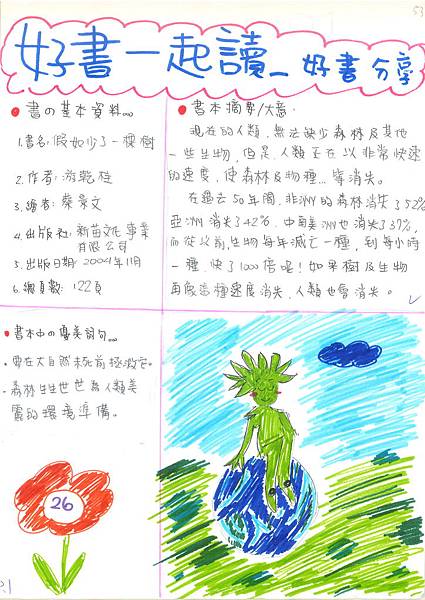 53
好書一起讀_好書分享
書の基本資料...
1.書名:假如少了一棵樹
2.作者:游乾桂
3.繪者:蔡景文
4.出版社:新苗文化事業
有限公司
5.出版日期:2004年1月
6.總頁數:122頁
書本摘要/大意:
現在的人類,無法缺少森林及其他
一些生物,但是,人類正在以非常快速
的速度,使森林及物種...等消失。
在過去50年間,非洲的森林消失了52%
亞洲消失了42%,中南美洲也消失了37%,
而從以前,生物每年滅亡一種,到每小時
一種,快了1000倍呢!如果樹及生物
再照這種速度消失,人類也會消失。
書本中の優美詞句...
要在大自然未死前拯救它。
森林生生世世為人類美
麗的環境準備。
26
P.1